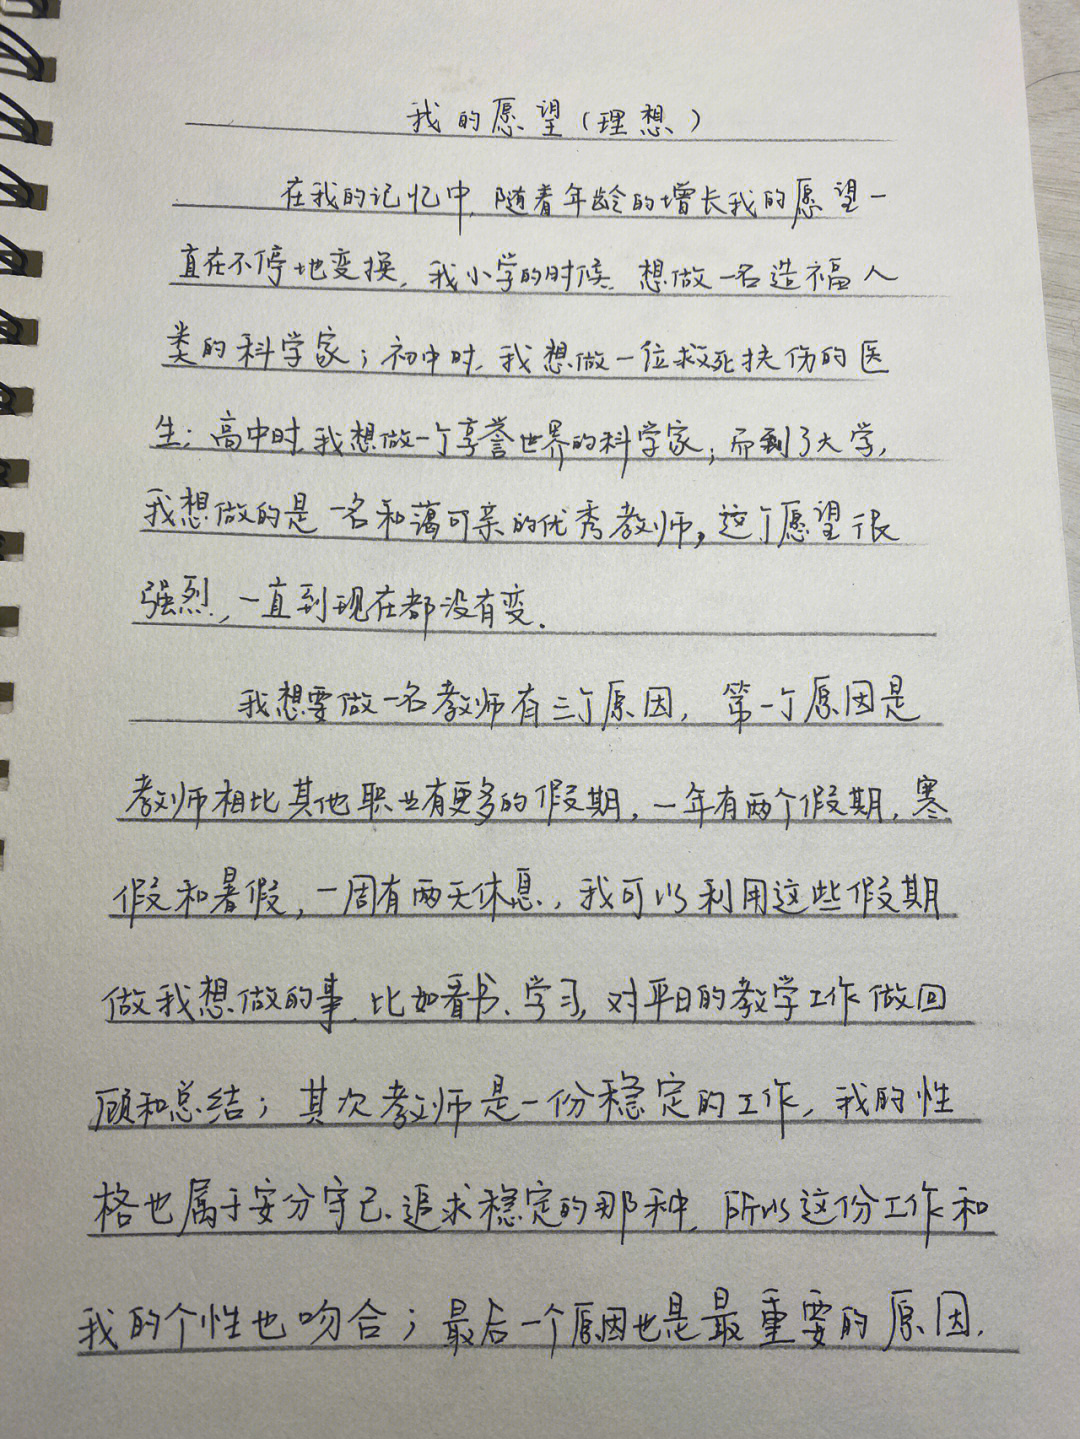 我的愿望(理想)
在我的记忆中,随着年龄的增长我的愿望一
直在不停地变换,我小学的时候,想做一名造福人
类的科学家;初中时,我想做一位救死扶伤的医
生;高中时,我想做一个享誉世界的科学家;而到了大学,
我想做的是一名和蔼可亲的优秀教师,这个愿望很
强烈,一直到现在都没有变.
我想要做一名教师有三个原因,第一个原因是
教师相比其他职业有更多的假期,一年有两个假期,寒
假和暑假,一周有两天休息,我可以利用这些假期
做我想做的事,比如看书、学习,对平日的教学工作做回
顾和总结;其次教师是一份稳定的工作,我的性
格也属于安分守己、追求稳定的那种,所以这份工作和
我的个性也吻合;最后一个原因也是最重要的原因,